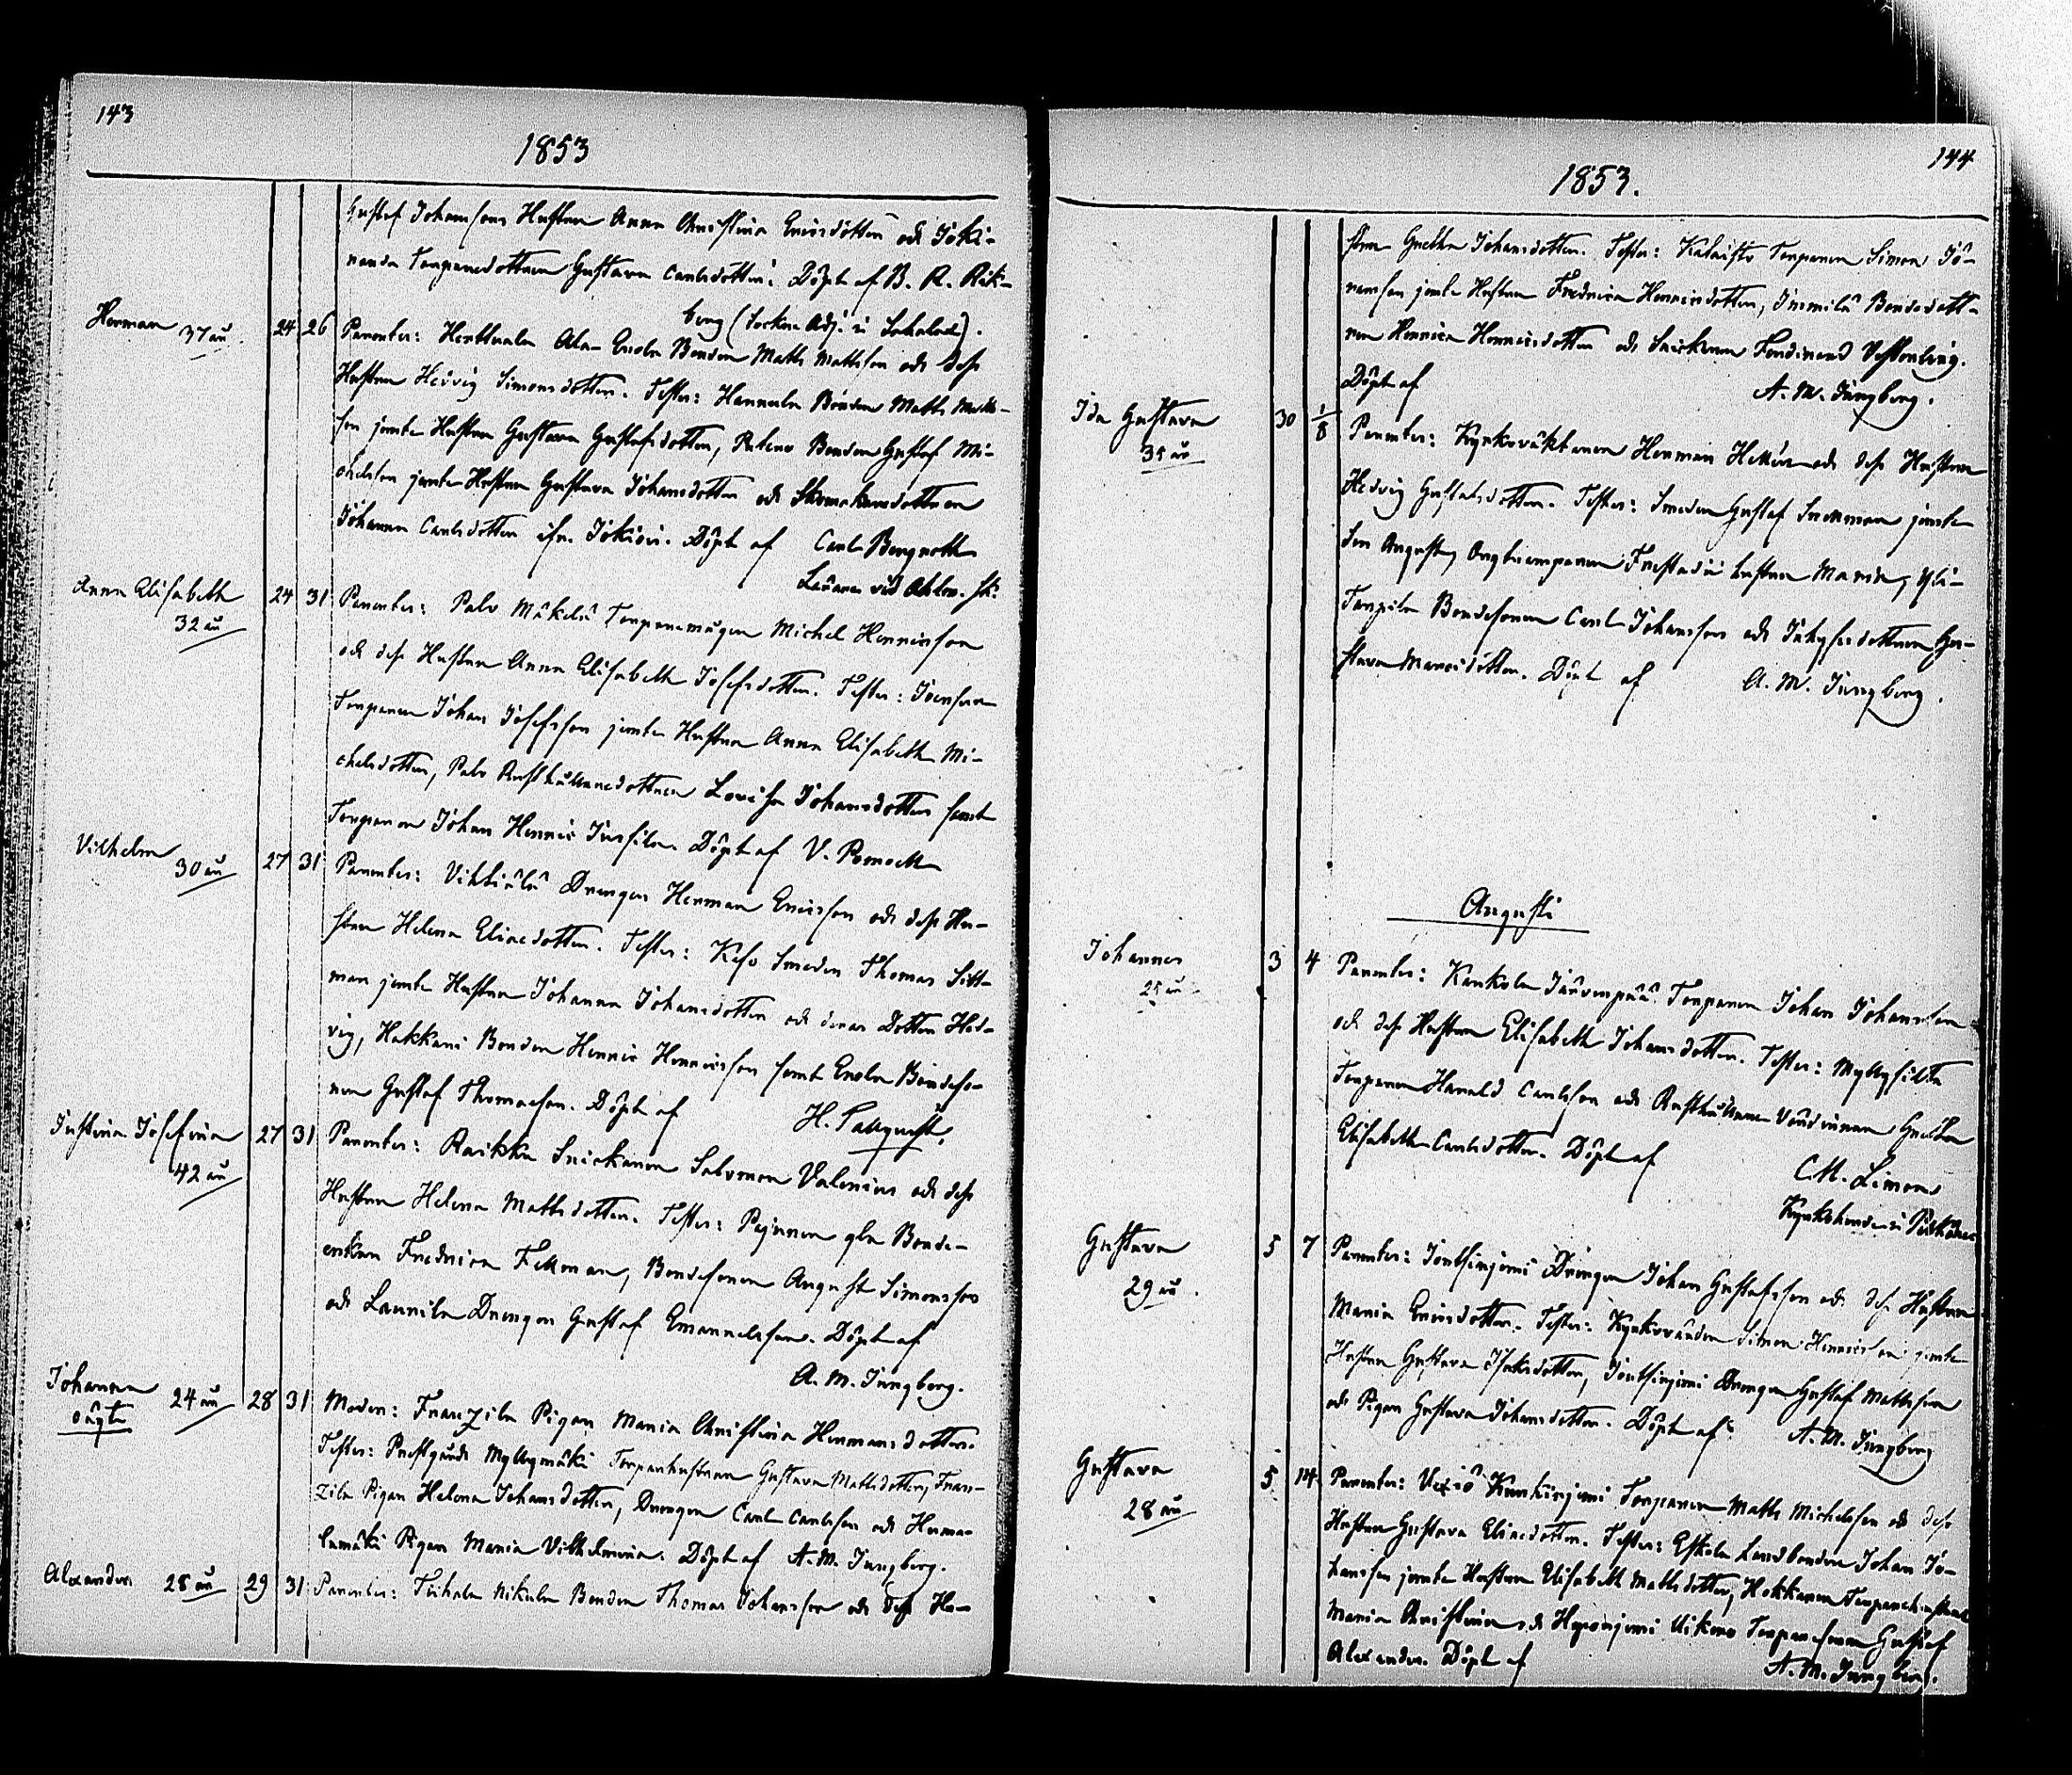 143
1853
Gustaf Johanssons Hustru Anna Christina Ericsdotter och Joki-
nanda Torparedottren Gustava Carlsdotter. Döpt af B. R. Rik-
berg (Sockne Adj. i Lokalax).
Herman 37 år 24 26 Parentes: Herttuala Ala- Erola Bonden Matts Mattsson och dess
Hustru Hedvig Simonsdotter. Testes: Hannula Bonden Matts Matts-
son jemte Hustru Gustava Gustafsdotter, Bonden Gustaf Mi-
chelsson jemte Hustru Gustava Johansdotter och Skomakaredottren
Johanna Carlsdotter ifr. Jokiois. Döpt af Carl Bergroth
Lärare vid
Anna Elisabeth 24 31 Parentes: Palo Mäkelä Torparemågen Michel Henricsson
32 år
och dess Hustru Anna Elisabeth Josefsdotter. Testes: Joensuu
Torparen Johan Josefsson jemte Hustru Anna Elisabeth Mi-
chelsdotter, Palo Rusthållaredottren Lovisa Johansdotter samt
Torparen Johan Henric Jussila. Döpt af V. Pomoell
Vilhelm 30 år 27 31 Parentes: Vihtiälä Drengen Herman Ericsson och dess Hu-
stru Helena Eliaedotter. Testes: Keso Smeden Thomas Litt-
man jemte Hustru Johanna Johansdotter och deras Dotter Hed-
vig, Hakkani Bonden Henric Henricsson samt Erola Bondeso-
nen Gustaf Thomasson. Döpt af H. Pallquist.
Justina Josefina 27 31 Parentes: Raikka Snickaren Salomon Valenius och dess
42 år
Hustru Helena Mattsdotter. Testes: gla Bonde-
enkan Fredrica Fellman, Bondesonen August Simonsson
och Laurila Drengen Gustaf Emanuelsson. Döpt af
A. M. Ljungberg.
Johanna 24 år 28 31 Modern: Franzila Pigan Maria Christina Hermansdotter.
oägta
Testes: Prestgårds Myllymäki Torparehustrun Gustava Mattsdotter, Fran-
zila Pigan Helena Johansdotter, Drengen Carl Carlsson och Huma-
lamäki Pigan Maria Vilhelmina. Döpt af A. M. Ljungberg.
Alexander 28 år 29 31 Parentes: Nikula Bonden Thomas Johansson och dess Hu-
144
1853.
stru Greta Johansdotter. Testes: Kalaisto Torparen Simon Jo-
hansson jemte Hustru Fredrica Henricsdotter, Immilä Bondedott-
ren Henrica Henricsdotter och Snickaren Ferdinand Vesterling.
Döpt af A. M. Ljungberg.
Ida Gustava 30 1/8 Parentes: Kyrkoväktaren Herman Hellén och dess Hustru
35 år
Hedvig Gustafsdotter. Testes: Smeden Gustaf Lucenman jemte
Son August, Orgtramparen Frestadii hustru Maria, Yli-
Torpila Bondesonen Carl Johansson och Inhysesdottren Gu-
stava Marcusdotter. Döpt af A. M. Ljungberg.
Augusti
Johannes 3 4 Parentes: Kankola Järvenpää Torparen Johan Johansson
25 år
och dess Hustru Elisabeth Johansdotter. Testes: Myllysilta
Torparen Harald Carlsson och Rusthållare Värdinnan Greta
Elisabeth Carlsdotter. Döpt af C. M. Limon
Kyrkoherde i Pälkäne
Gustava 5 7 Parentes: Joutsinjemi Drengen Johan Gustafsson och dess Hustru
29 år.
Maria Ericsdotter. Testes: Kyrkovärden Simon Henricsson jemte
Hustru Gustava Isaksdotter, Joutsinjemi Drengen Gustaf Mattsson
och Pigan Gustava Johansdotter. Döpt af A. M. Ljungberg
Gustava 5 14 Parentes: Uxiö Kurkiinjemi Torparen Matts Michelsson och dess
28 år
Hustru Gustava Eliaedotter. Testes: Eskola Landbonden Johan Jo-
hansson jemte Hustru Elisabeth Mattsdotter, Hokkanen Torparehustrun
Maria Christina och Haponjemi Uikero Torparesonen Gustaf
Alexander. Döpt af A. M. Ljungberg.